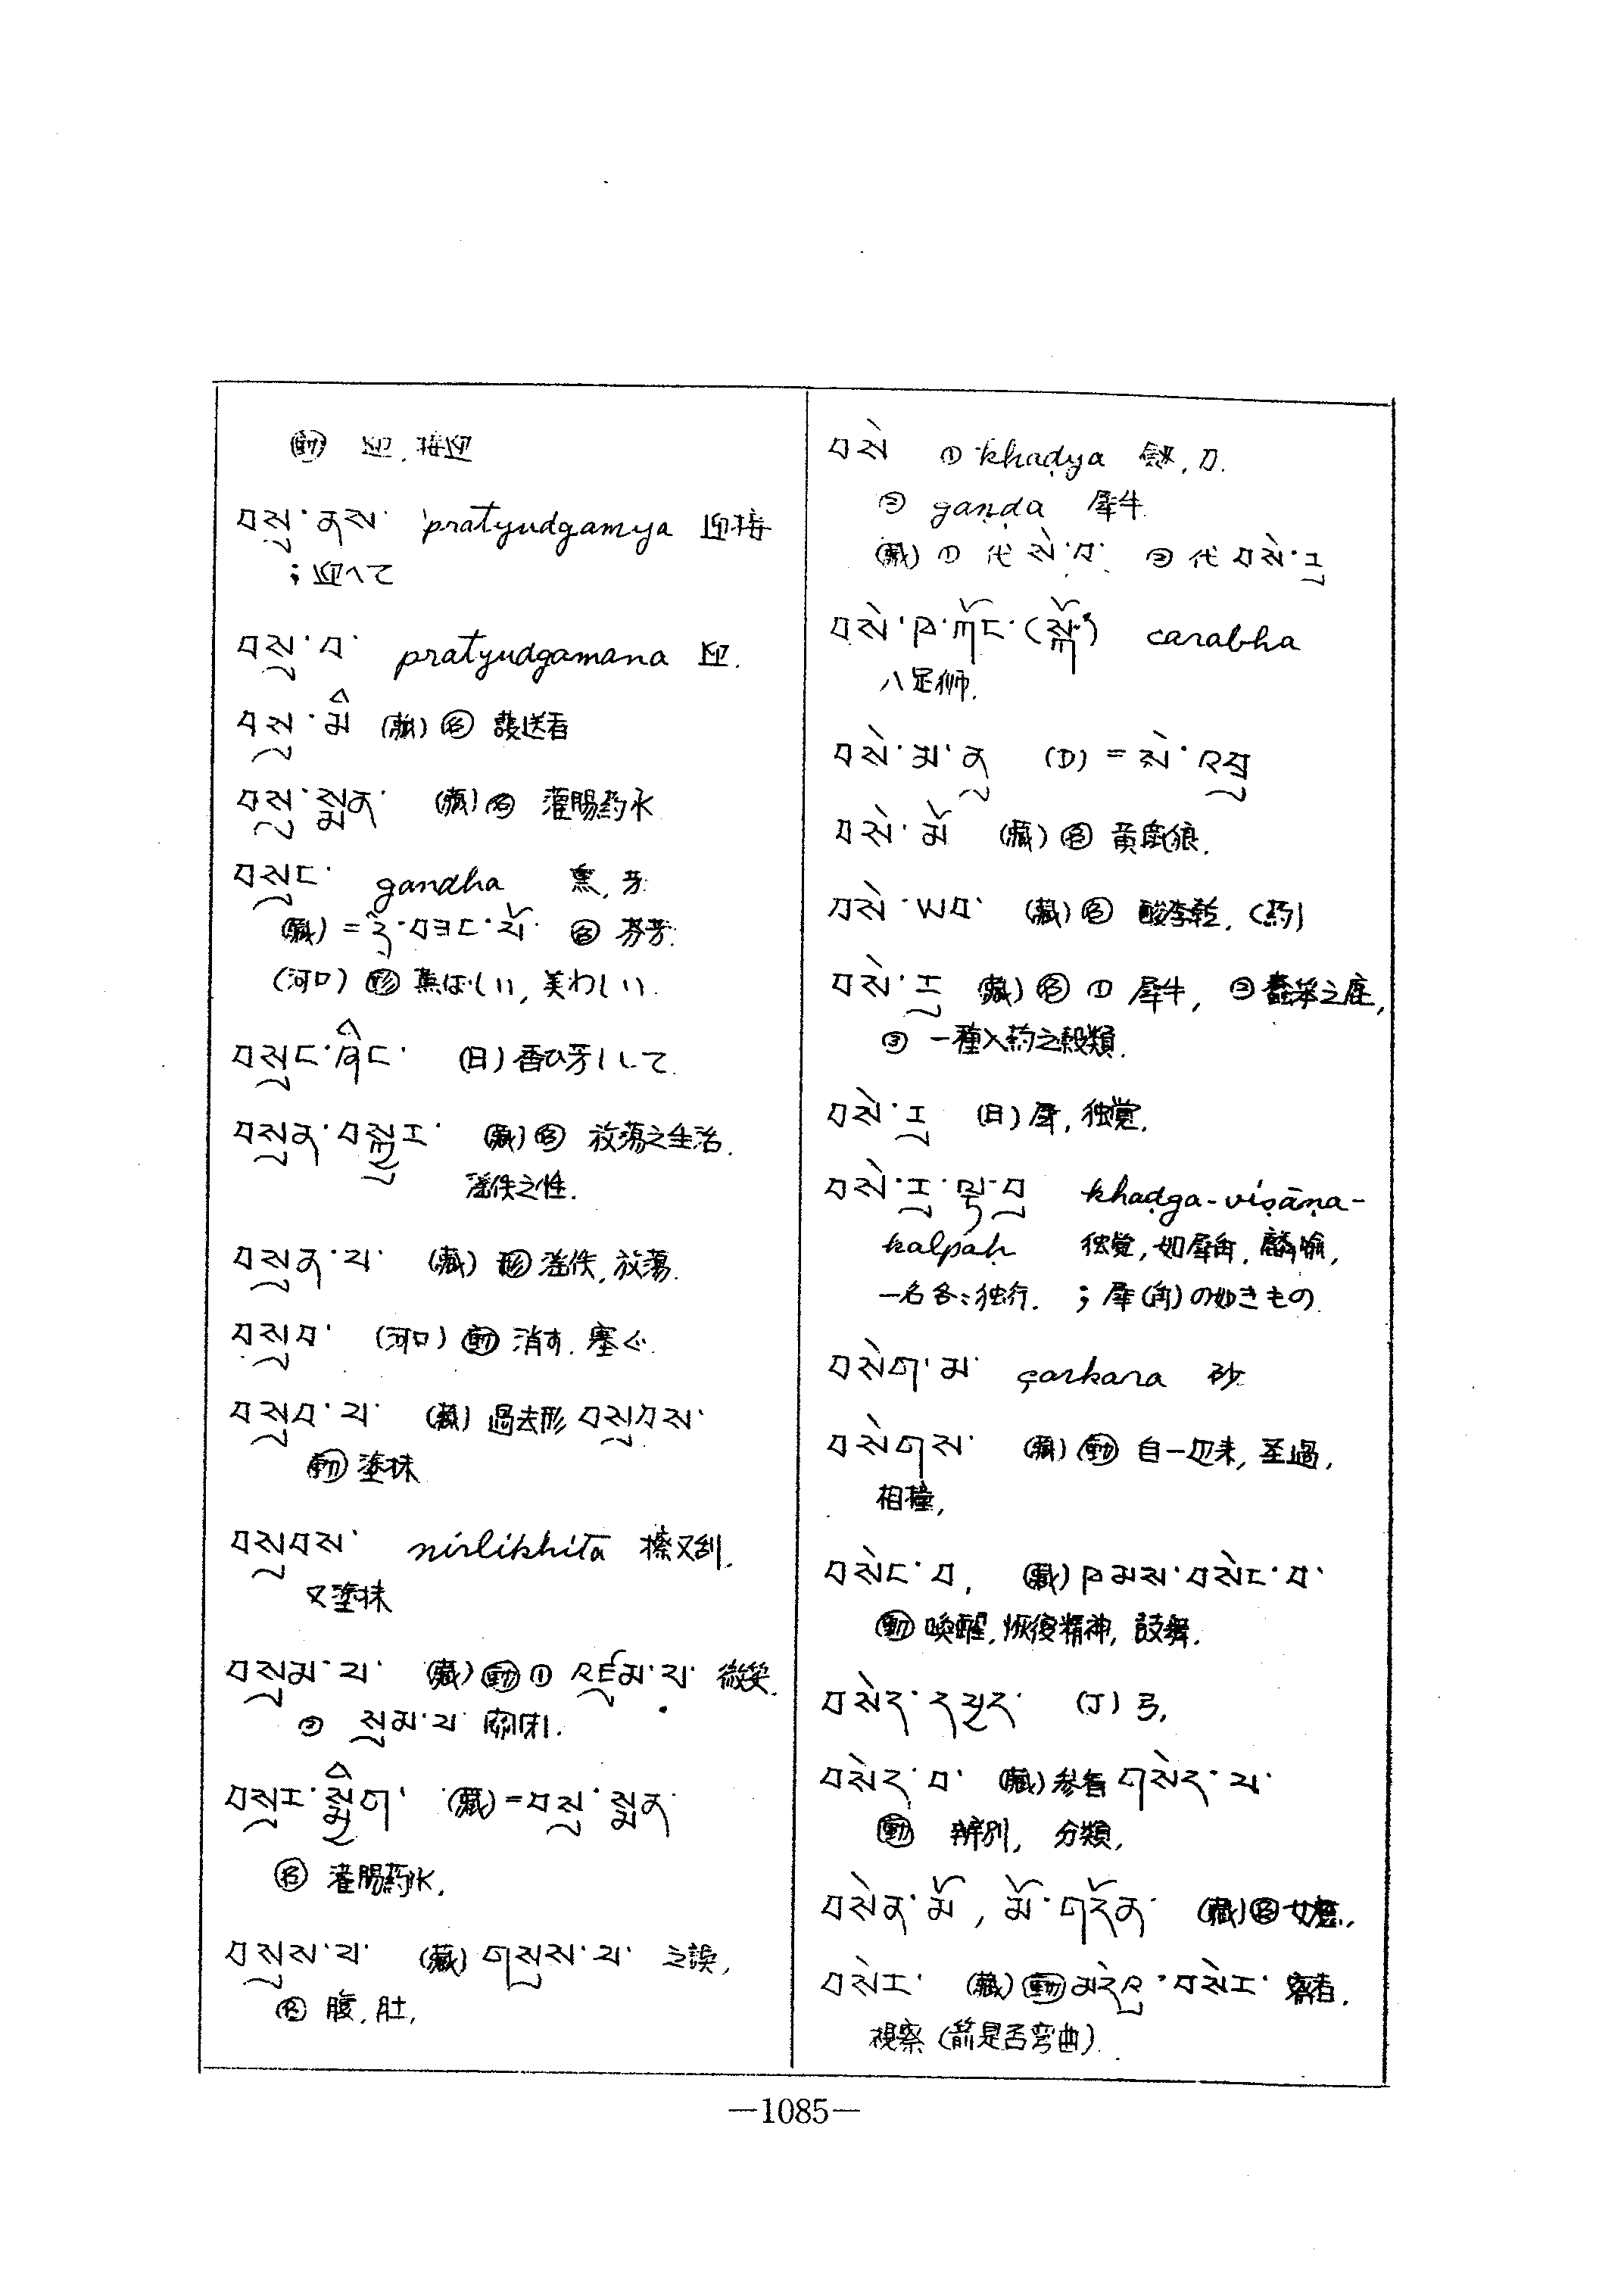 ㊝ 迎, 接迎
བསུ་ནས་ pratyudgamya 迎接
; 迎へて
བསུ་བ་ pratyudgamana 迎.
བསུ་མི (藏) ㊔ 護送者
བསུ་སྨན་ (藏) ㊔ 灌腸药水
བསུང་ gandha 熏, 芳
(藏) = དྲི་བཟང་པོ་ ㊔ 芬芳.
(河口) ㊋ 薫ばしい, 美わしい.
བསུང་ཞིང་ (日) 香ひ芳しして.
བསུན་བསྐྱུར་ (藏) ㊔ 放蕩之生活.
淫佚之性.
བསུན་པ་ (藏) 形 淫佚, 放蕩.
བསུབ་ (河口) 動 消す, 塞ぐ.
བསུབ་པ་ (藏) 過去形 བསུབས་
動 塗抹
བསུབས་ nirlikhitā 擦又刮.
又塗抹
བསུམ་པ་ (藏) 動 ① འཛུམ་པ་ 微笑.
② སུམ་པ་ 関闭.
བསུར་སྨྱིག་ (藏) = བསུ་སྨན་
名 灌腸药水.
བསུས་པ་ (藏) གསུས་པ་ 之誤,
名 腹, 肚,
བསེ ① khaḍya 劔, 刀.
② gaṇḍa 犀牛
(藏) ① 代 སེ་བ་ ② 代 བསེ་རུ
བསེ་ཁ་ཀོང་(སྐོ་) carabha
八足獅.
བསེ་མ་ནུ (D) = སེ་འབྲུ
བསེ་མོ (藏) 名 黄鼠狼.
བསེ་ཡབ་ (藏) 名 酸李乾, (药)
བསེ་རུ (藏) 名 ① 犀牛, ② 蠢笨之鹿,
③ 一種入药之穀類.
བསེ་རུ (日) 犀, 独覚.
བསེ་རུ་ལྟ་བུ khaḍga-viṣāṇa-
kalpaḥ 独覚, 如犀角, 麟喩,
一名各々独行. ; 犀(角)の如きもの.
བསེག་མ་ çarkara 砂
བསེགས་ (藏) 動 自一边来, 至過,
相撞,
བསེང་བ, (藏) ཁམས་བསེང་བ་
動 喚醒, 恢復精神, 鼓舞.
བསེད་དཔྱད་ (J) 弓,
བསེད་བ་ (藏) 参看 གསེད་པ་
動 辨别, 分類,
བསེན་མོ, མོ་གདོན་ (藏) 名 女魔,
བསེར་ (藏) 動 མདའ་བསེར་ 察看.
視察 (箭是否弯曲).
—1085—